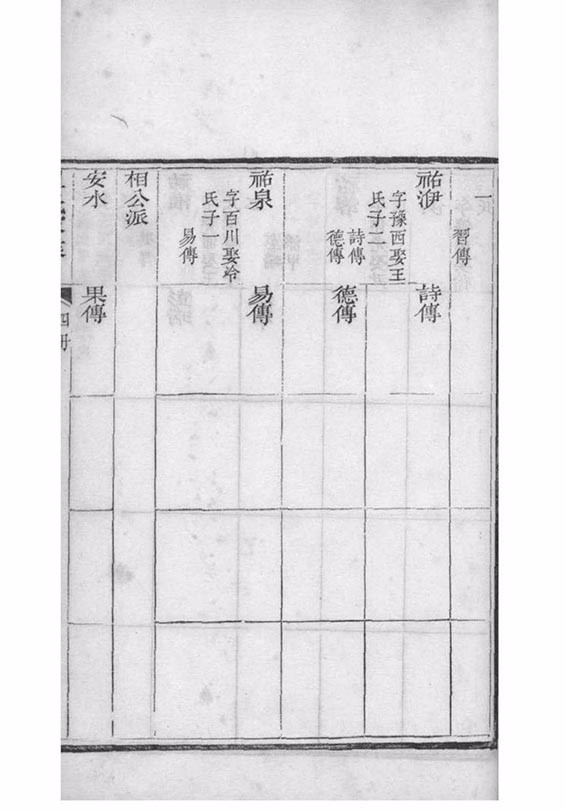 習傳
祐洢
字豫西娶王
氏子二
詩傳
德傳
詩傳
德傳
祐泉
字百川娶冷
氏子一
易傳
易傳
相公派
安水
果傳
四冊